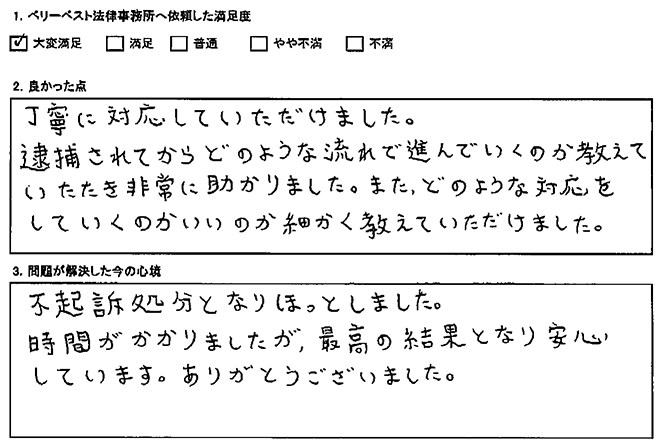 1. ベリーベスト法律事務所へ依頼した満足度
☑ 大変満足 □ 満足 □ 普通 □ やや不満 □ 不満
2. 良かった点
丁寧に対応していただけました。
逮捕されてからどのような流れで進んでいくのか教えて
いただき非常に助かりました。また,どのような対応を
していくのがいいのか細かく教えていただけました。
3. 問題が解決した今の心境
不起訴処分となりほっとしました。
時間がかかりましたが,最高の結果となり安心
しています。ありがとうございました。